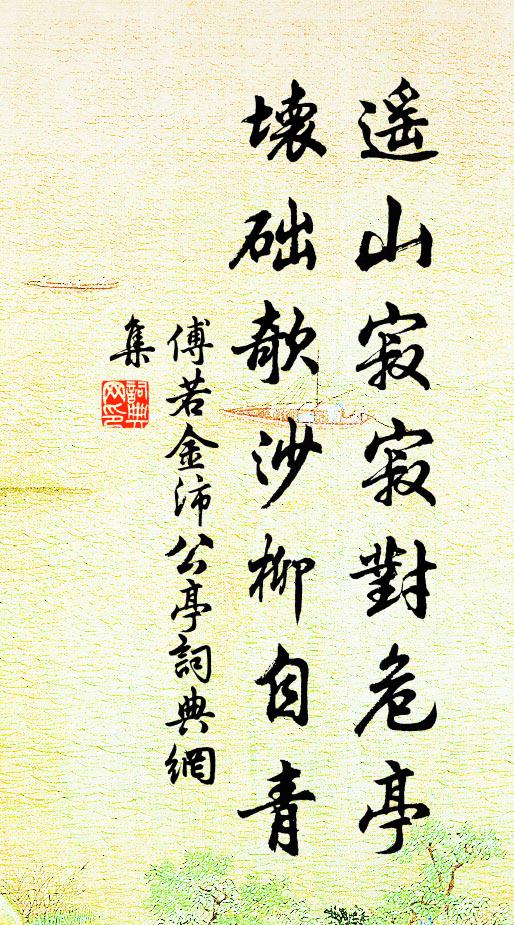 遥山寂寂對危亭
壞础欹沙柳自青
傅若金沛公亭詞典網
集
詞典網印